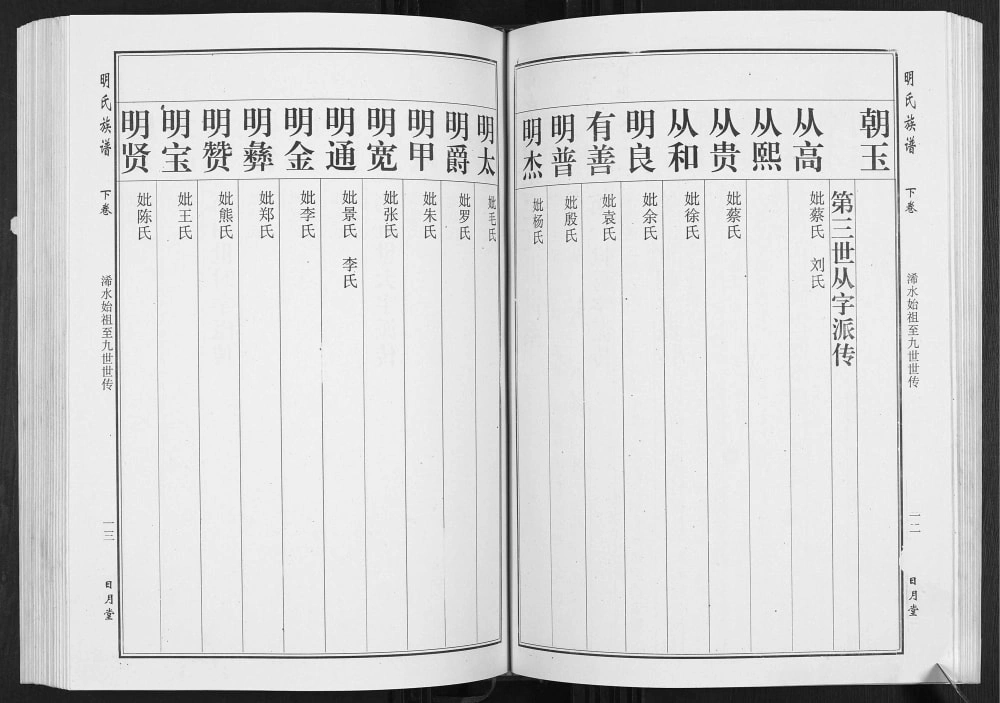 明氏族谱
下卷
浠水始祖至九世世传
一二
日月堂
朝玉
第三世从字派传
从高
妣蔡氏 刘氏
从熙
从贵
妣蔡氏
从和
妣徐氏
明良
妣余氏
有善
妣袁氏
明普
妣殷氏
明杰
妣杨氏
明太
妣毛氏
明爵
妣罗氏
明甲
妣朱氏
明宽
妣张氏
明通
妣景氏 李氏
明金
妣李氏
明彝
妣郑氏
明赞
妣熊氏
明宝
妣王氏
明贤
妣陈氏
明氏族谱
下卷
浠水始祖至九世世传
一三
日月堂